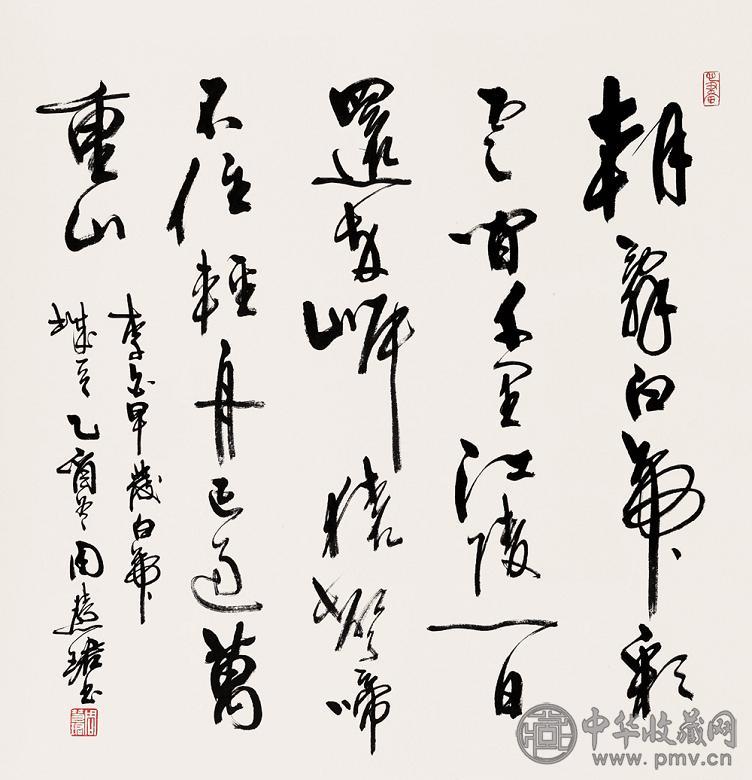 朝辭白帝彩
雲間千里江陵一日
還兩岸猿聲啼
不住輕舟已過萬
重山
李白早發白帝
城 乙酉冬周慧珺書
中华收藏网
www.pmv.cn